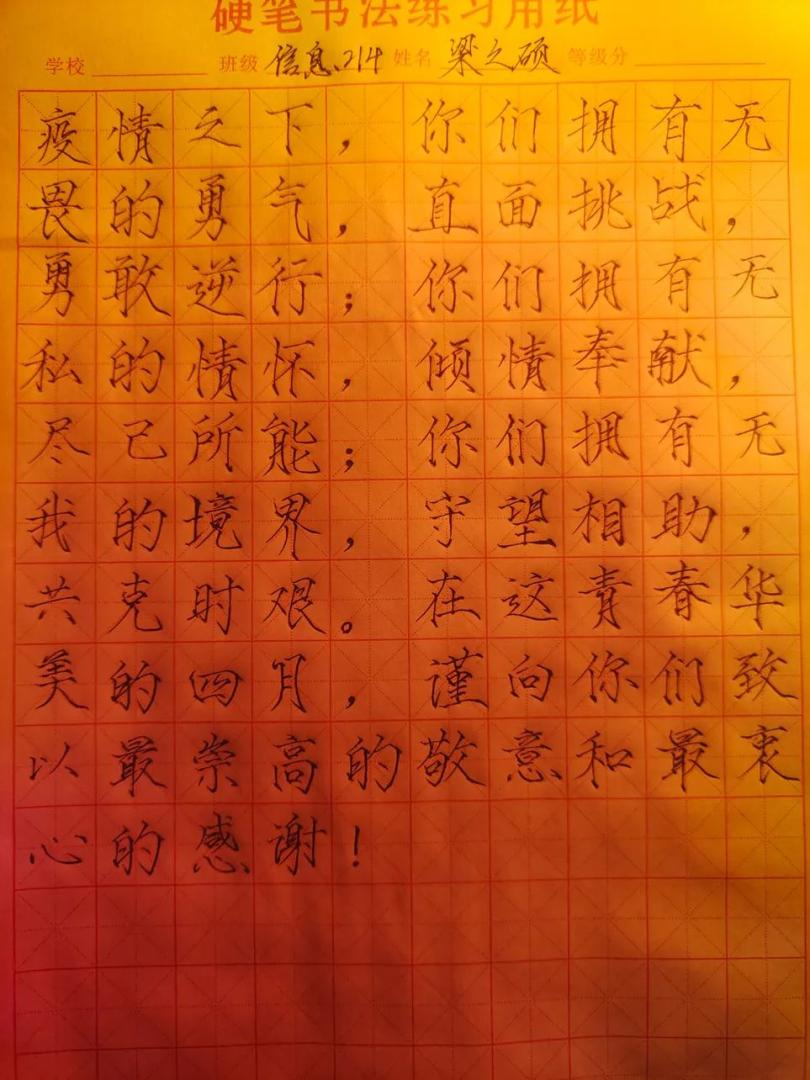 硬笔书法练习用纸
学校 班级 信息214 姓名 梁之硕 等级分
疫情之下，你们拥有无
畏的勇气，直面挑战，
勇敢逆行；你们拥有无
私的情怀，倾情奉献，
尽己所能；你们拥有无
我的境界，守望相助，
共克时艰。在这青春华
美的四月，谨向你们致
以最崇高的敬意和最衷
心的感谢！